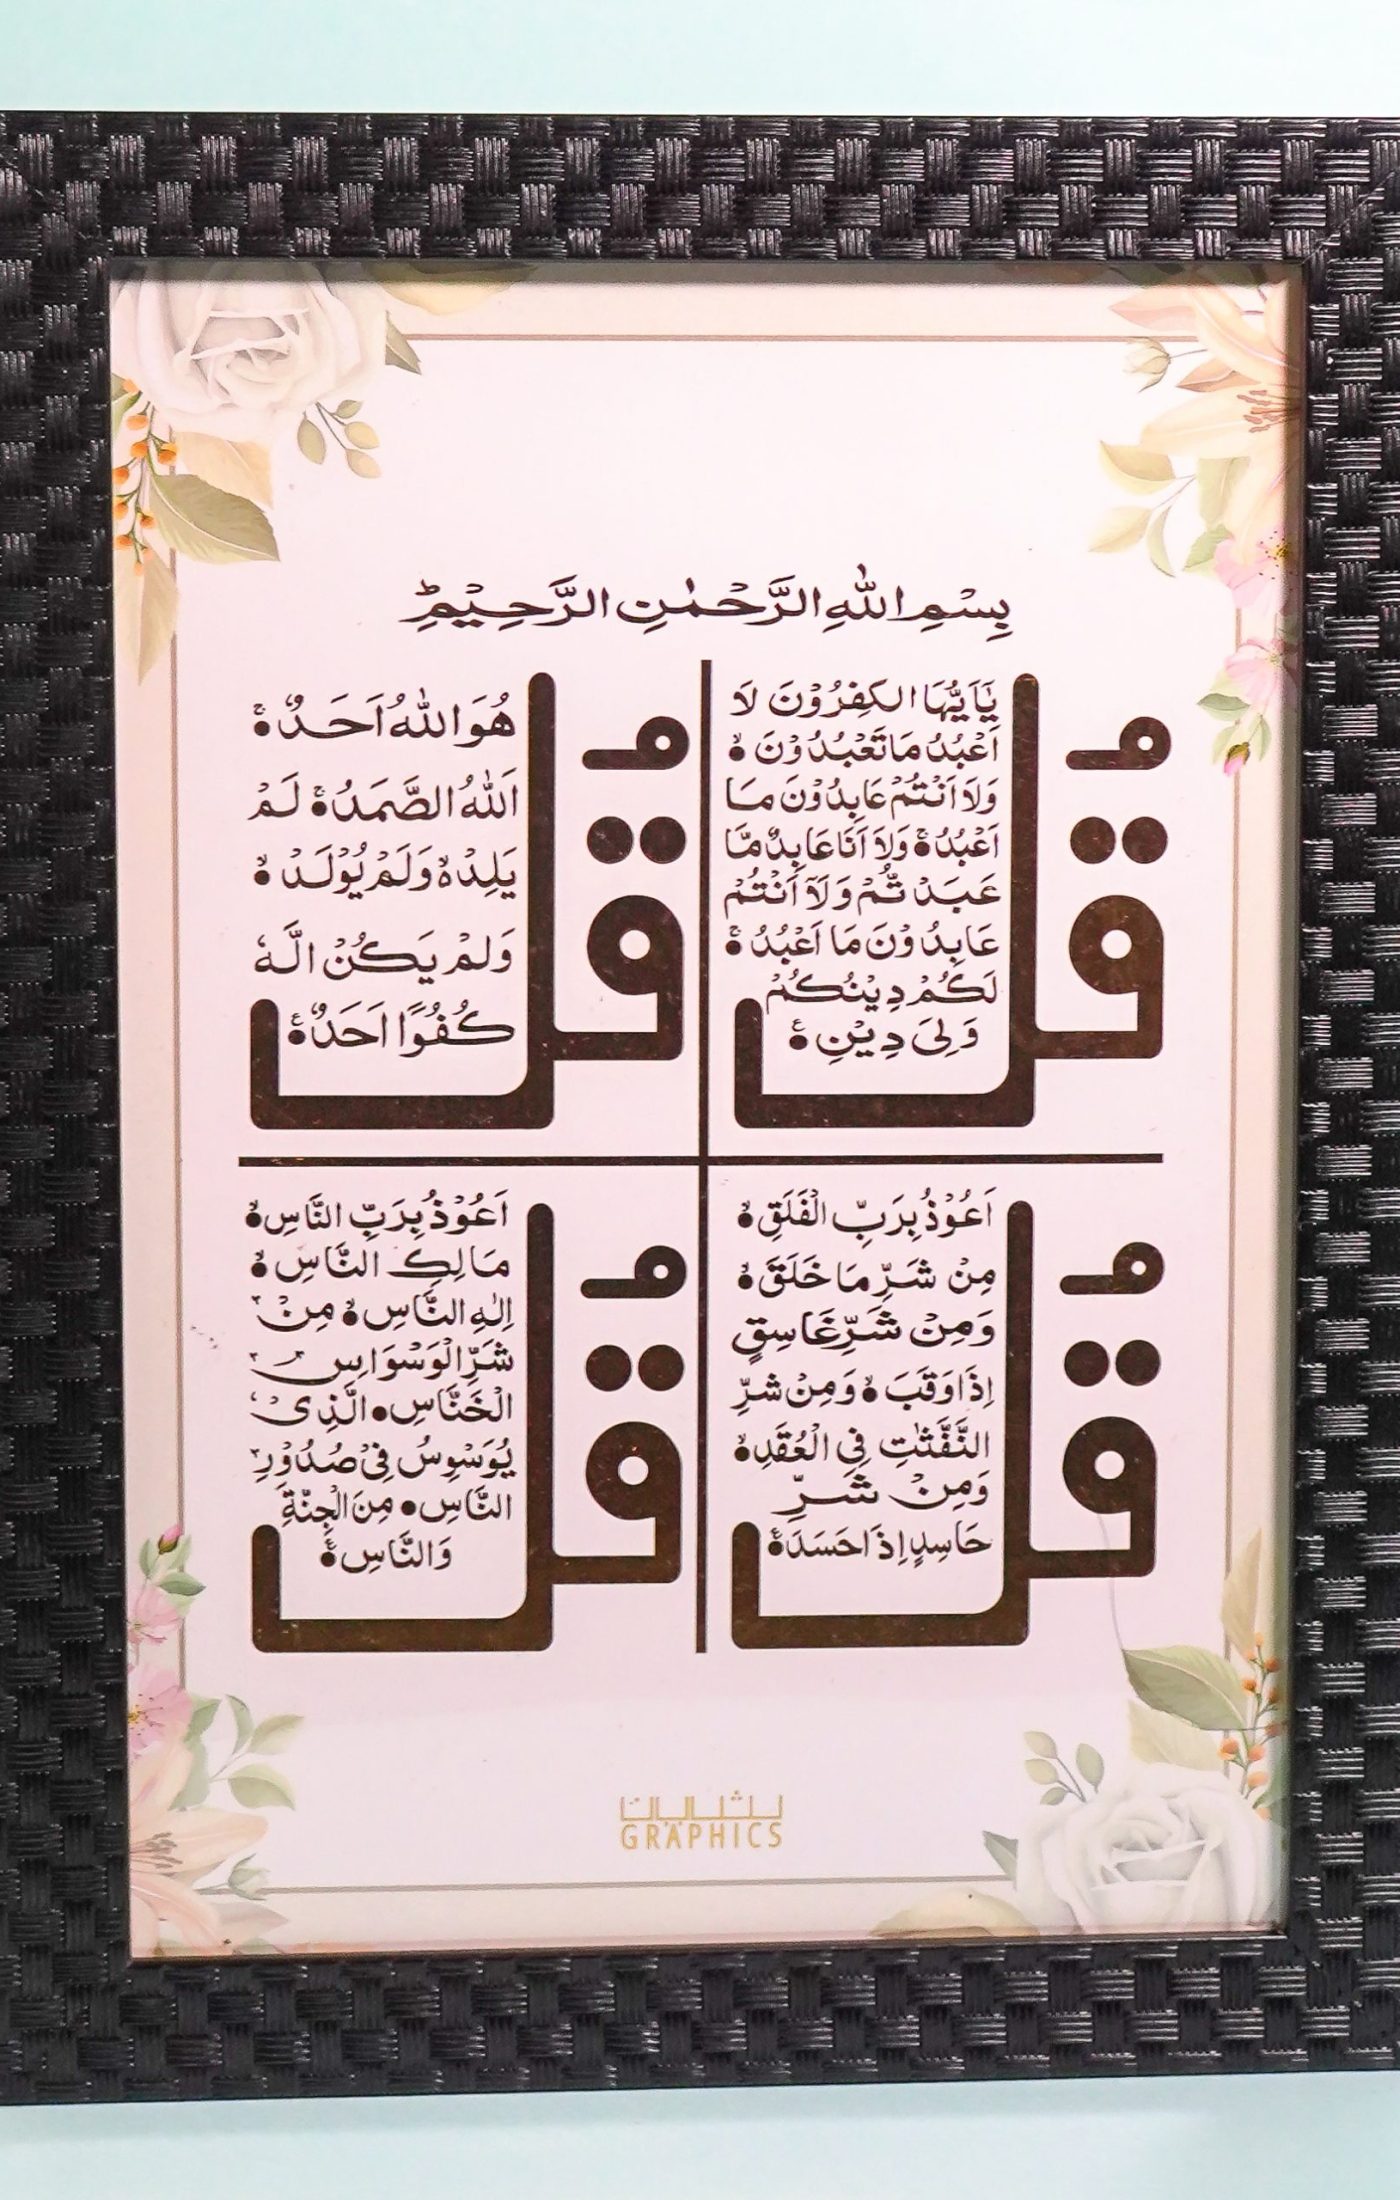 بِسْمِ اللهِ الرَّحْمٰنِ الرَّحِيْمِ
قُل
يٰٓاَيُّهَا الكٰفِرُوْنَ لَا
اَعْبُدُ مَا تَعْبُدُوْنَ ۙ
وَلَا اَنْتُمْ عَابِدُوْنَ مَا
اَعْبُدُ ۚ وَلَا اَنَا عَابِدٌ مَّا
عَبَدْتُّمْ وَلَآ اَنْتُمْ
عَابِدُوْنَ مَا اَعْبُدُ ۚ
لَكُمْ دِيْنُكُمْ
وَلِيَ دِيْنِ ۚ
قُل
هُوَ اللهُ اَحَدٌ ۚ
اَللهُ الصَّمَدُ ۚ لَمْ
يَلِدْ ۙ وَلَمْ يُوْلَدْ ۙ
وَلَمْ يَكُنْ الَّهٗ
كُفُوًا اَحَدٌ ۚ
قُل
اَعُوْذُ بِرَبِّ الْفَلَقِ ۙ
مِنْ شَرِّ مَا خَلَقَ ۙ
وَمِنْ شَرِّ غَاسِقٍ
اِذَا وَقَبَ ۙ وَمِنْ شَرِّ
النَّفّٰثٰتِ فِي الْعُقَدِ ۙ
وَمِنْ شَرِّ
حَاسِدٍ اِذَا حَسَدَ ۚ
قُل
اَعُوْذُ بِرَبِّ النَّاسِ ۙ
مَالِكِ النَّاسِ ۙ
اِلٰهِ النَّاسِ ۙ مِنْ
شَرِّ الْوَسْوَاسِ
الْخَنَّاسِ ۙ الَّذِىْ
يُوَسْوِسُ فِيْ صُدُوْرِ
النَّاسِ ۙ مِنَ الْجِنَّةِ
وَالنَّاسِ ۚ
GRAPHICS